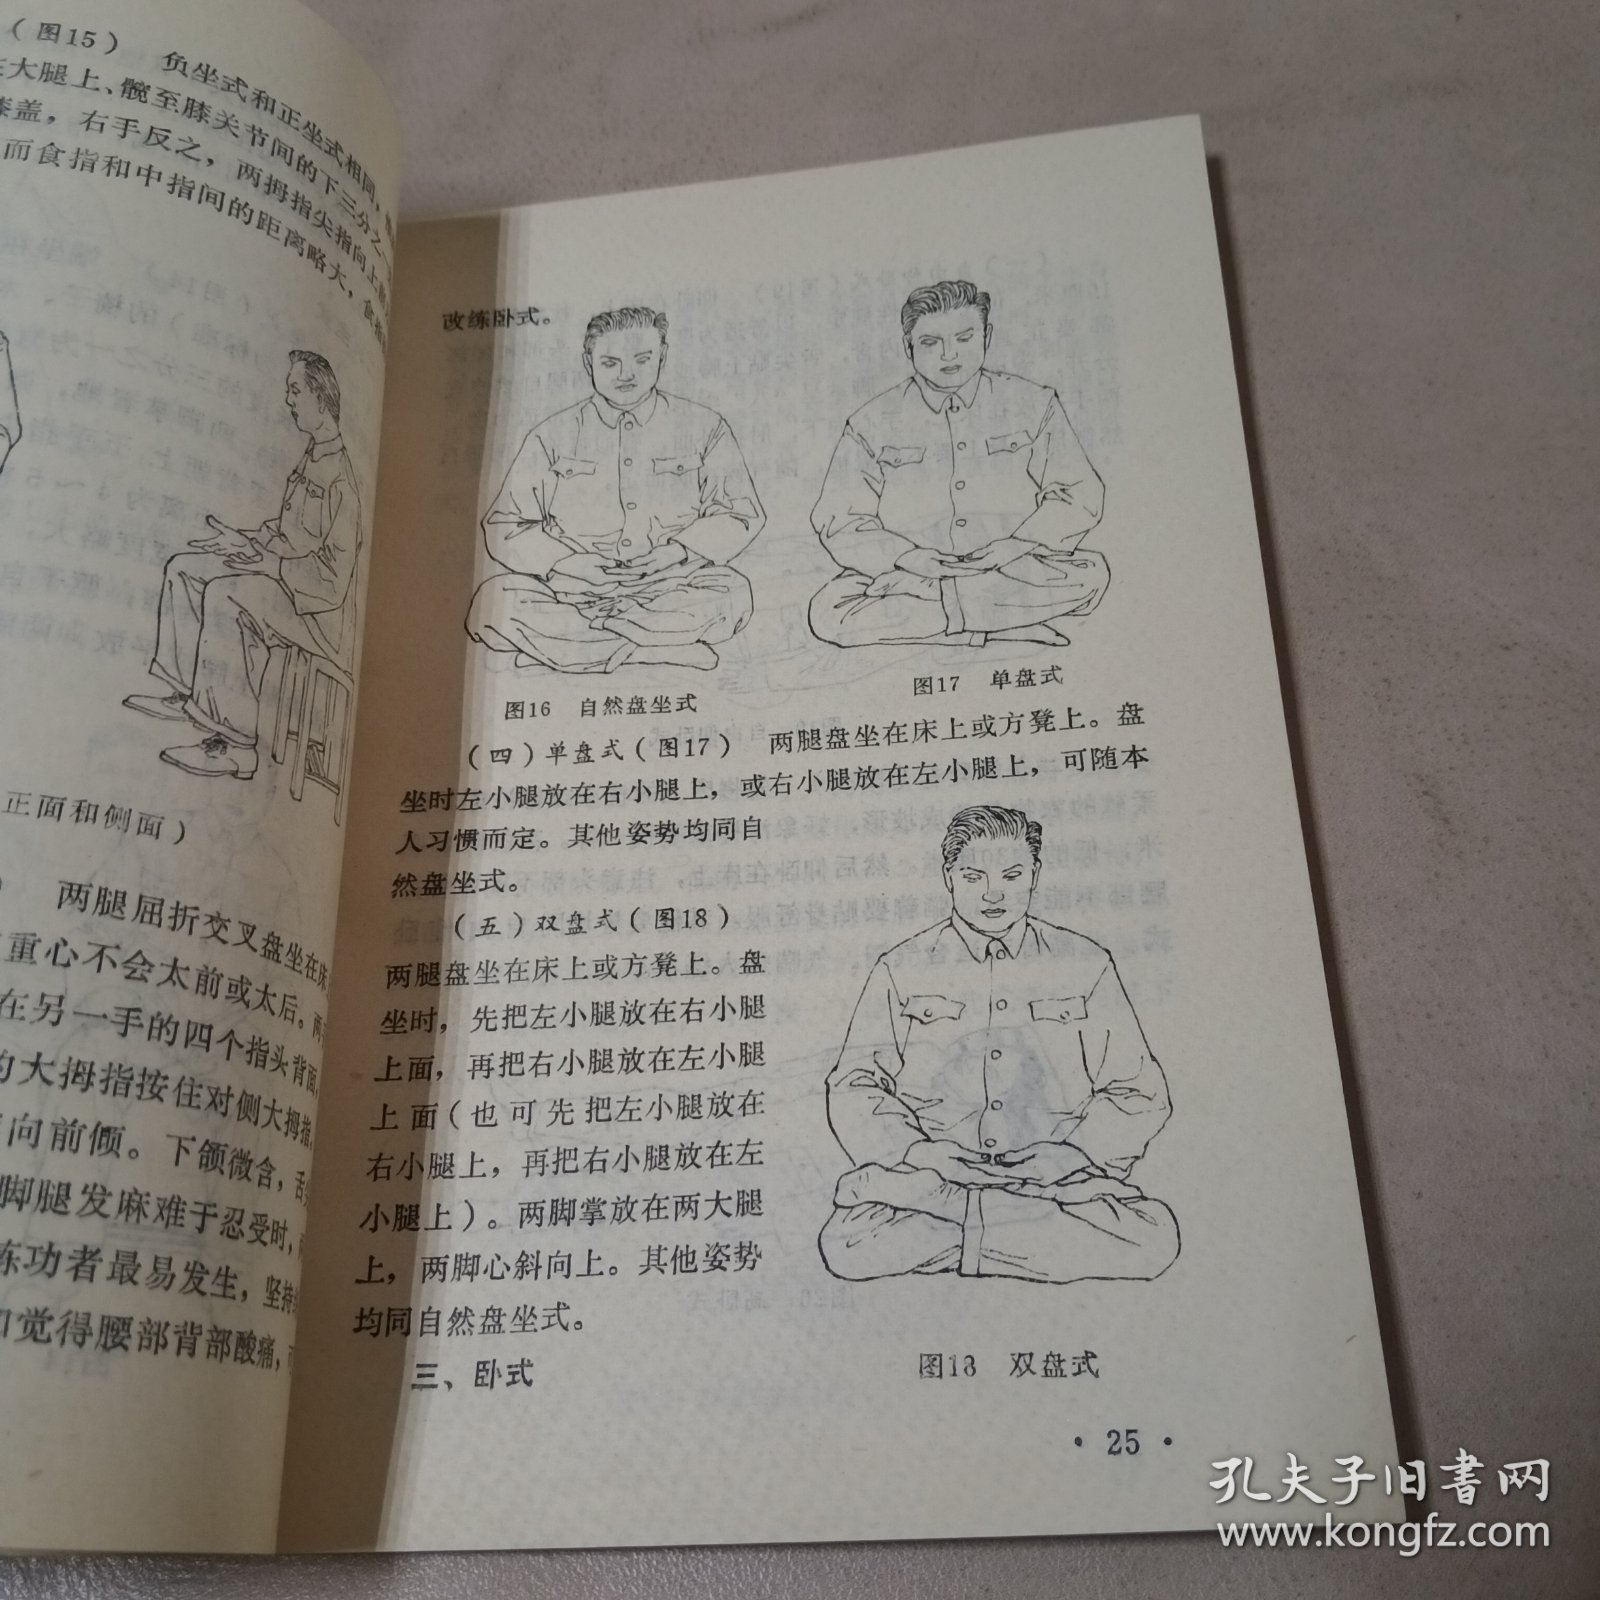 （图15） 负坐式和正坐式相同，
在大腿上、髋至膝关节间的下三分之
膝盖，右手反之，两拇指尖指向上
而食指和中指间的距离略大，食
正面和侧面）
两腿屈折交叉盘坐在床
重心不会太前或太后。两
在另一手的四个指头背面，
的大拇指按住对侧大拇指，
向前倾。下颌微含，舌
脚腿发麻难于忍受时，
练功者最易发生，坚持
觉得腰部背部酸痛，
改练卧式。
图16 自然盘坐式
图17 单盘式
（四）单盘式（图17） 两腿盘坐在床上或方凳上。盘
坐时左小腿放在右小腿上，或右小腿放在左小腿上，可随本
人习惯而定。其他姿势均同自
然盘坐式。
（五）双盘式（图18）
两腿盘坐在床上或方凳上。盘
坐时，先把左小腿放在右小腿
上面，再把右小腿放在左小腿
上面（也可先把左小腿放在
右小腿上，再把右小腿放在左
小腿上）。两脚掌放在两大腿
上，两脚心斜向上。其他姿势
均同自然盘坐式。
图18 双盘式
三、卧式
• 25 •
孔夫子旧书网
www.kongfz.com